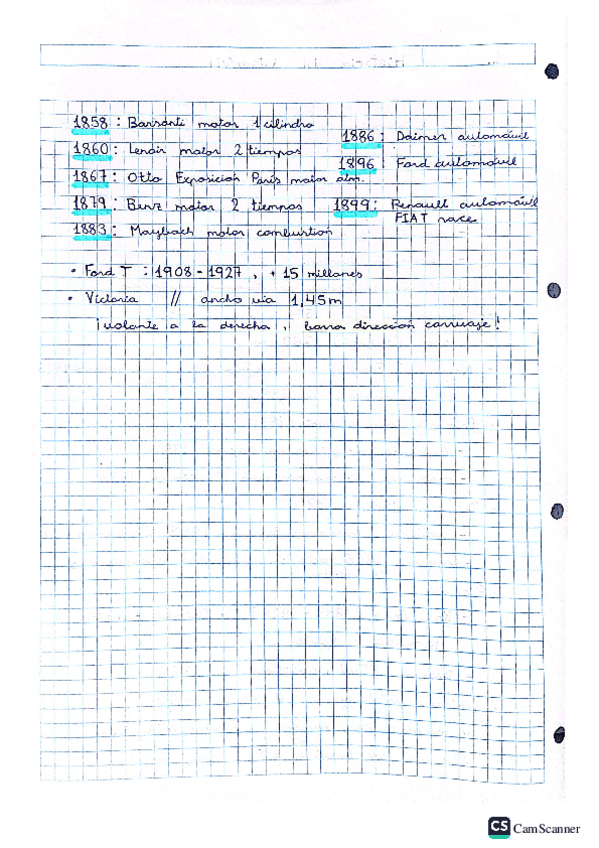 1858: Barsanti motor 1 cilindro
1860: Lenoir motor 2 tiempos
1867: Otto Exposición París motor atm.
1879: Benz motor 2 tiempos
1883: Maybach motor combustión
1886: Daimer automóvil
1896: Ford automóvil
1899: Renault automóvil
FIAT nace
• Ford T : 1908 - 1927, + 15 millones
• Victoria // ancho vía 1,45m
¡volante a la derecha, barra dirección carruaje!
CS CamScanner